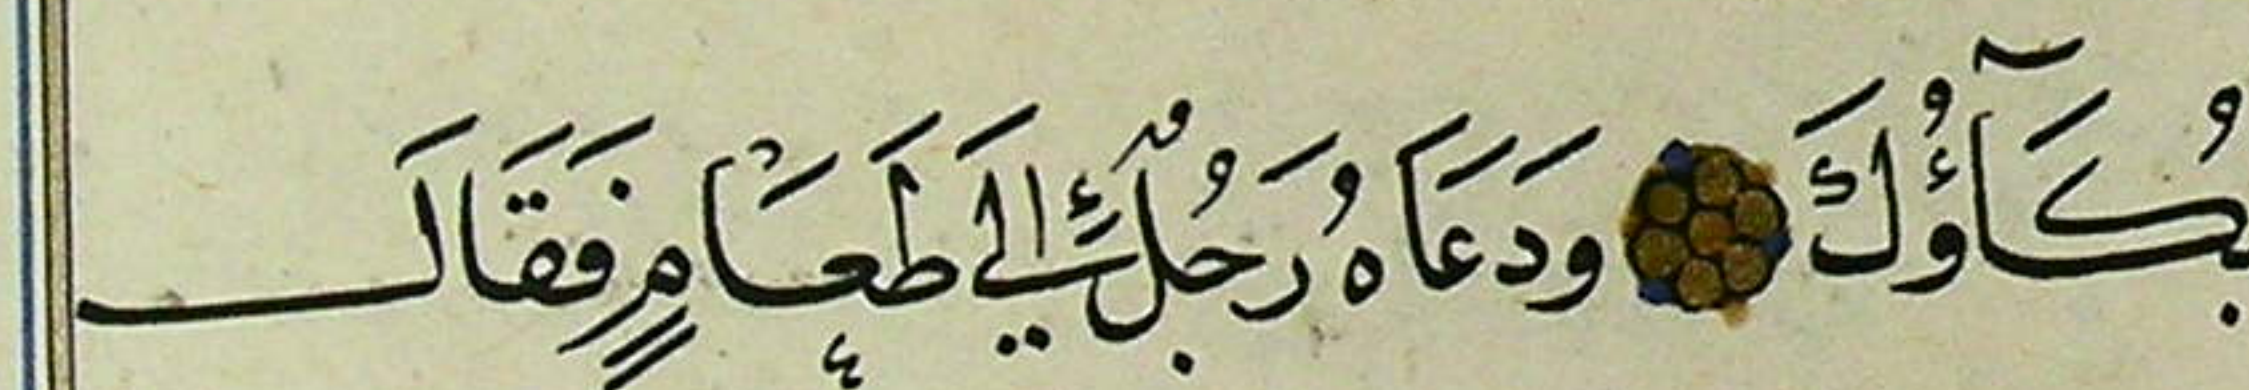 بُكَآؤُكَ ۞ وَدَعَاهُ رَجُلٌ إِلَى طَعَامٍ فَقَالَ